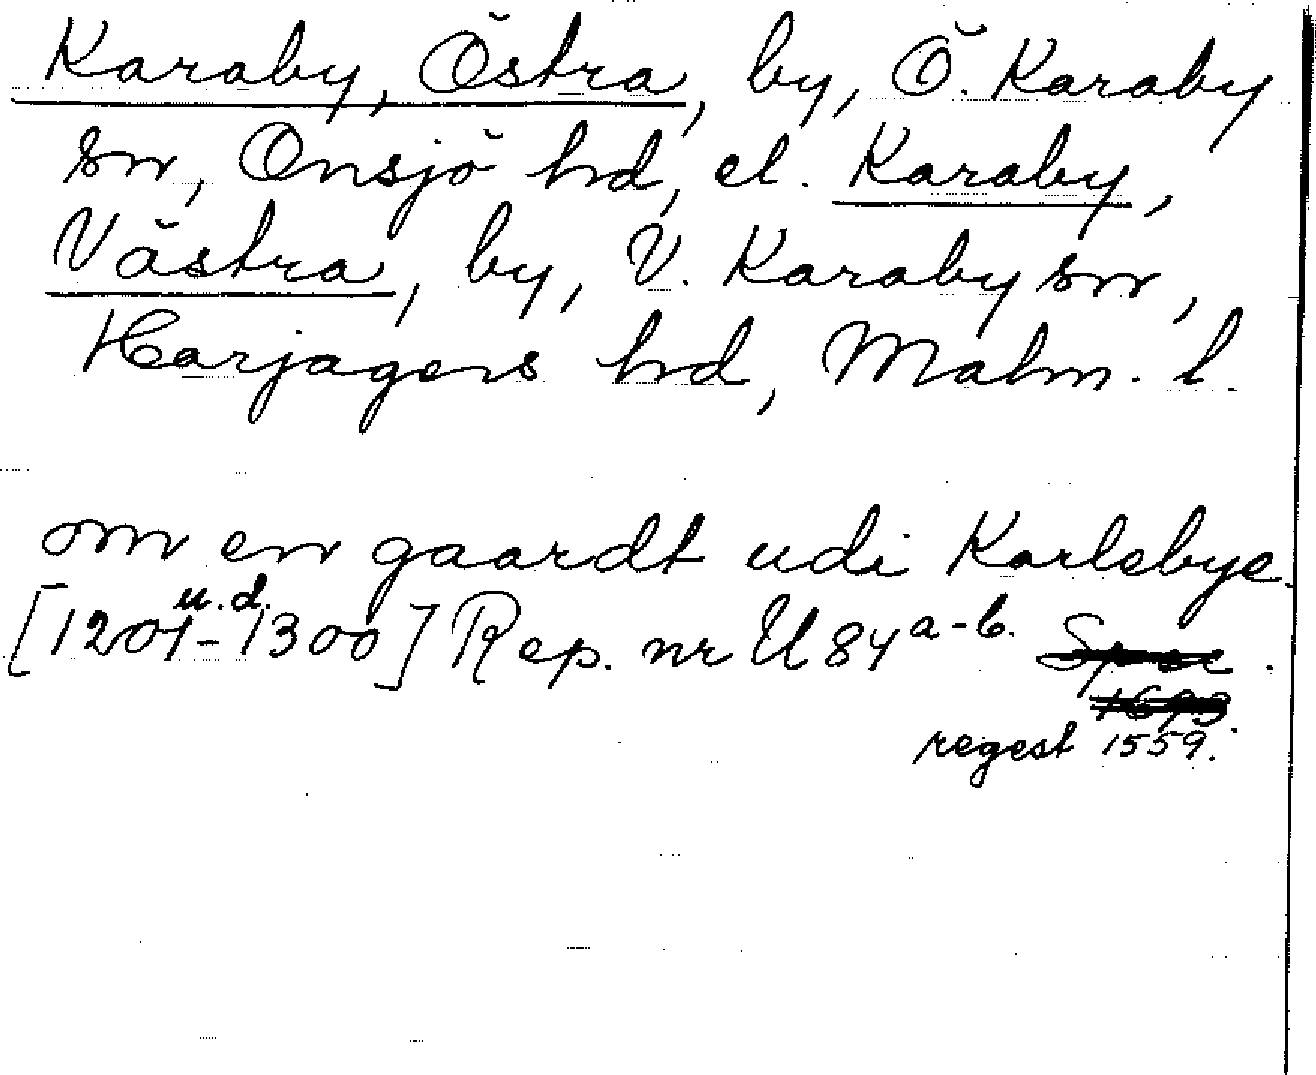 Karaby, Östra, by, Ö. Karaby
sn, Onsjö hd, el. Karaby,
Västra, by, V. Karaby sn,
Harjagers hd, Malm. l.
om en gaardt udi Karlebye
u.d.
[1201-1300] Rep. nr U 84 a-b.
regest 1559.